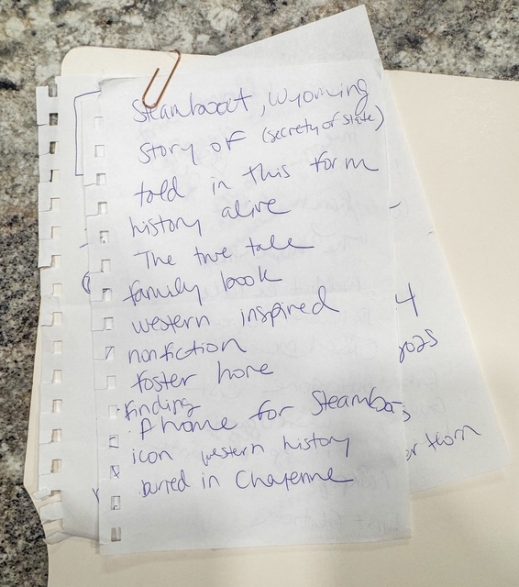 Steamboat, Wyoming
Story of (secretry of state)
told in this form
history alive
The true tale
family book
western inspired
nonfiction
foster hore
finding
A home for Steamboa
icon western history
buried in Chayenne
4
2025
er thorn